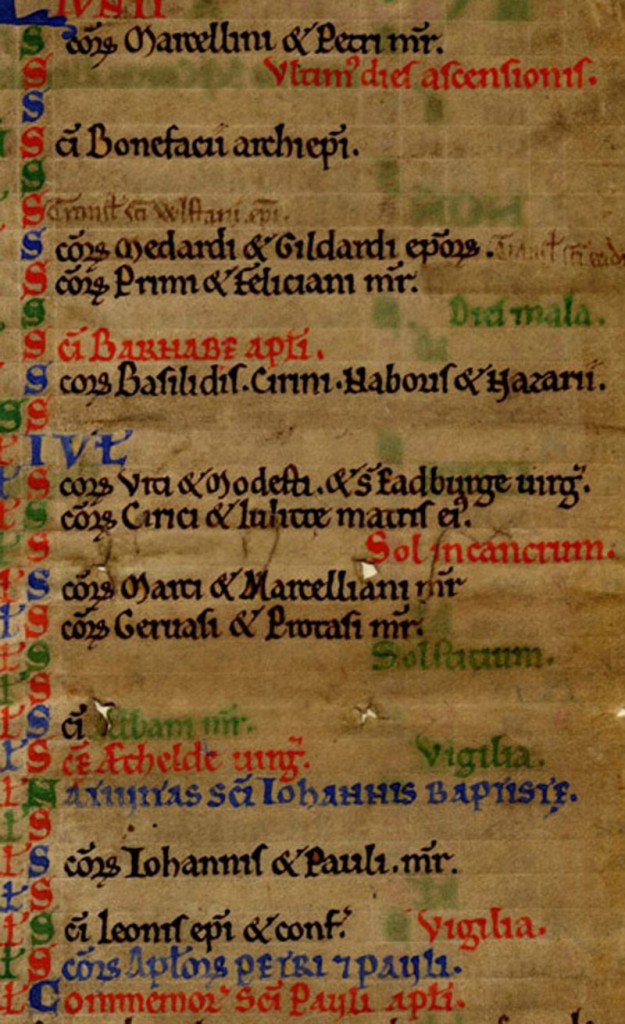 IUNII
S cōꝝ Marcellini & Petri mr̄.
S Vltim᾽ dies ascensionis.
S
S cī Bonefacii archiepī.
S
S Transł sc̄i Wlstani. epī.
S cōꝝ Medardi & Gildardi epōꝝ. Transł sc̄i
S cōꝝ Primi & Feliciani mr̄.
S Dies mala.
S cī BARNABE apłi.
S coꝝ Basilidis. Cirini. Naboris & Nazarii.
S S
IVŁ
S coꝝ Viti & Modesti. & s̄ Eadburge uirḡ.
S cōꝝ Cirici & Iulitte matris ei᾽.
S Sol in cancrum.
S cōꝝ Marci & Marcelliani mr̄
S cōꝝ Geruasi & Protasi mr̄.
S Solsticium.
S
S cī Albani mr̄.
S cē Æthelde uirḡ. Vigilia.
NATIVITAS SC̄I IOHANNIS BAPTISTĘ.
S
S cōꝝ Iohannis & Pauli. mr̄.
S
S cī Leonis epī & conf.᾽ Vigilia.
S cōꝝ Apłoꝝ PETRI ⁊ PAULI.
Commemor᾽ Sc̄i Pauli apłi.